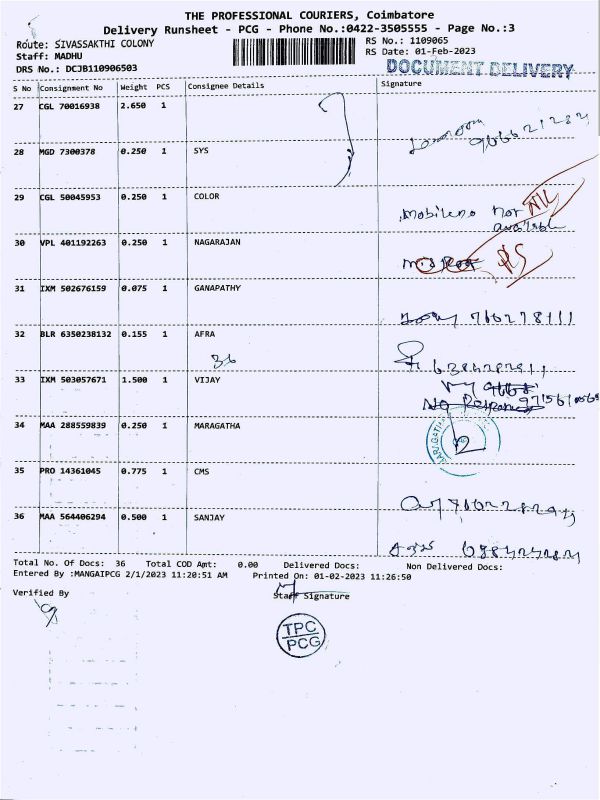 THE PROFESSIONAL COURIERS, Coimbatore
Delivery Runsheet - PCG - Phone No.:0422-3505555 - Page No.:3
Route: SIVASSAKTHI COLONY
RS No.: 1109065
Staff: MADHU
RS Date: 01-Feb-2023
DRS No.: DCJB110906503
DOCUMENT DELIVERY
S No Consignment No Weight PCS Consignee Details Signature
27 CGL 70016938 2.650 1
28 MGD 7300378 0.250 1 SYS
29 CGL 50045953 0.250 1 COLOR
Mobileno not
available
NIL
30 VPL 401192263 0.250 1 NAGARAJAN
31 IXM 502676159 0.075 1 GANAPATHY
32 BLR 6350238132 0.155 1 AFRA
36
33 IXM 503057671 1.500 1 VIJAY
No Response
34 MAA 288559839 0.250 1 MARAGATHA
35 PRO 14361045 0.775 1 CMS
36 MAA 564406294 0.500 1 SANJAY
Total No. Of Docs: 36 Total COD Amt: 0.00 Delivered Docs: Non Delivered Docs:
Entered By :MANGAIPCG 2/1/2023 11:20:51 AM Printed On: 01-02-2023 11:26:50
Verified By
Staff Signature
TPC
PCG